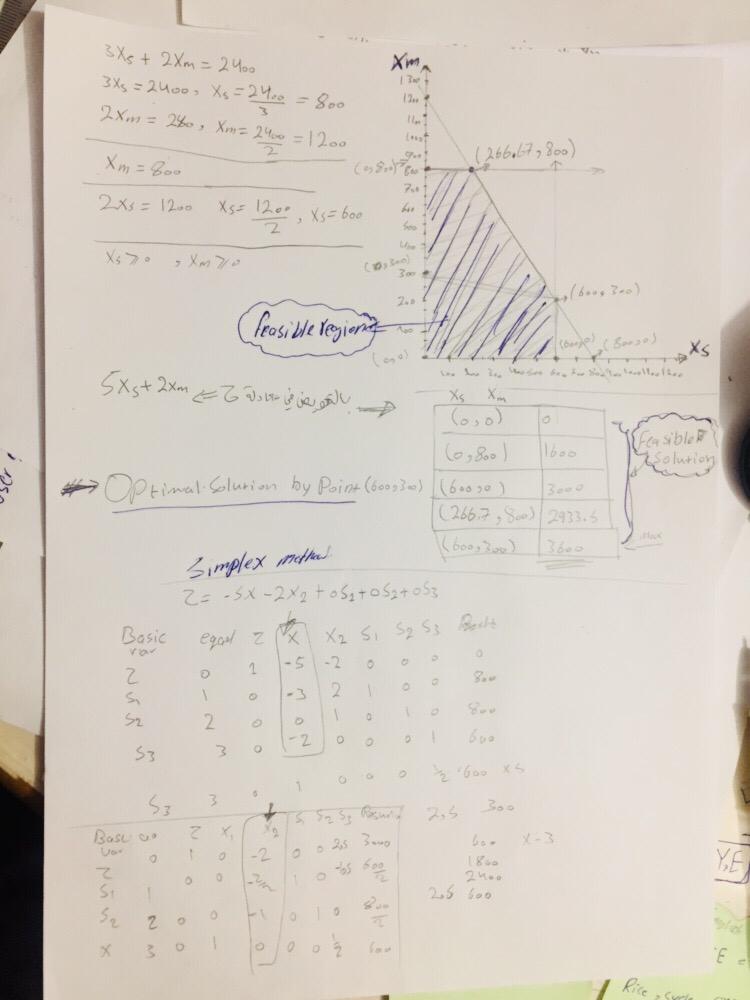 3Xs + 2Xm = 2400
3Xs = 2400, Xs = 2400/3 = 800
2Xm = 240, Xm = 2400/2 = 1200
Xm = 800
2Xs = 1200 Xs = 1200/2, Xs = 600
Xs ≥ 0, Xm ≥ 0
Xm
1300
1200
1100
1000
900
(0,800) 800
(266.67, 800)
700
600
500
400
300
200
100
(0,0)
(600,300)
(600,0) (800,0)
Xs
Feasible region
5Xs + 2Xm ⇐ بالتعويض في معادلة Z
Xs Xm
(0,0) 0
(0,800) 1600
(600,0) 3000
(266.7, 800) 2933.5
(600,300) 3600
Feasible Solution
Max
Optimal Solution by Point (600,300)
Simplex method
Z = -5X - 2X2 + 0S1 + 0S2 + 0S3
Basic var equal Z X X2 S1 S2 S3 Result
Z 0 1 -5 -2 0 0 0 0
S1 1 0 -3 2 1 0 0 800
S2 2 0 0 1 0 1 0 800
S3 3 0 -2 0 0 0 1 600
S3 3 0 1 0 0 0 1/2 600 X5
Basic var Z X1 X2 S1 S2 S3 Result
Z 0 1 0 -2 0 0 2.5 3000
S1 1 0 0 1 0 600/2
S2 2 0 0 -1 0 1 0 800/2
X 3 0 1 0 0 0 1/2 600
2,5 300
600 X-3
1800
2400
2,5 600
Y,E
E =
Rice